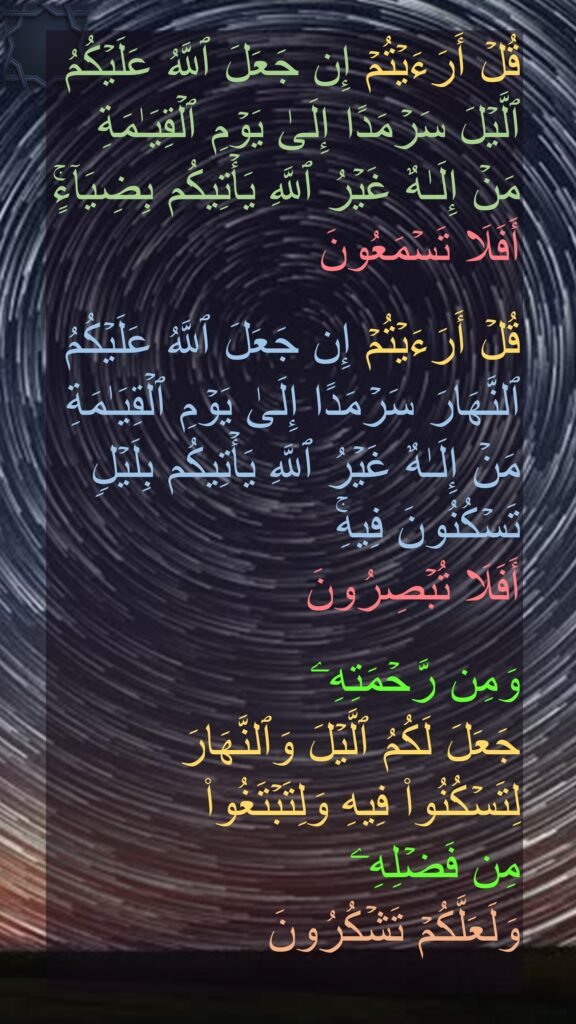 قُلۡ أَرَءَيۡتُمۡ إِن جَعَلَ ٱللَّهُ عَلَيۡكُمُ
ٱلَّيۡلَ سَرۡمَدًا إِلَىٰ يَوۡمِ ٱلۡقِيَـٰمَةِ
مَنۡ إِلَـٰهٌ غَيۡرُ ٱللَّهِ يَأۡتِيكُم بِضِيَآءٍۚ
أَفَلَا تَسۡمَعُونَ
قُلۡ أَرَءَيۡتُمۡ إِن جَعَلَ ٱللَّهُ عَلَيۡكُمُ
ٱلنَّهَارَ سَرۡمَدًا إِلَىٰ يَوۡمِ ٱلۡقِيَـٰمَةِ
مَنۡ إِلَـٰهٌ غَيۡرُ ٱللَّهِ يَأۡتِيكُم بِلَيۡلٖ
تَسۡكُنُونَ فِيهِۚ
أَفَلَا تُبۡصِرُونَ
وَمِن رَّحۡمَتِهِۦ
جَعَلَ لَكُمُ ٱلَّيۡلَ وَٱلنَّهَارَ
لِتَسۡكُنُواْ فِيهِ وَلِتَبۡتَغُواْ
مِن فَضۡلِهِۦ
وَلَعَلَّكُمۡ تَشۡكُرُونَ